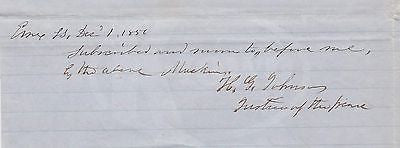 Essex SS, Decr 1, 1856
Subscribed and sworn to, before me,
by the above
H. G. Johnson
Justice of the peace